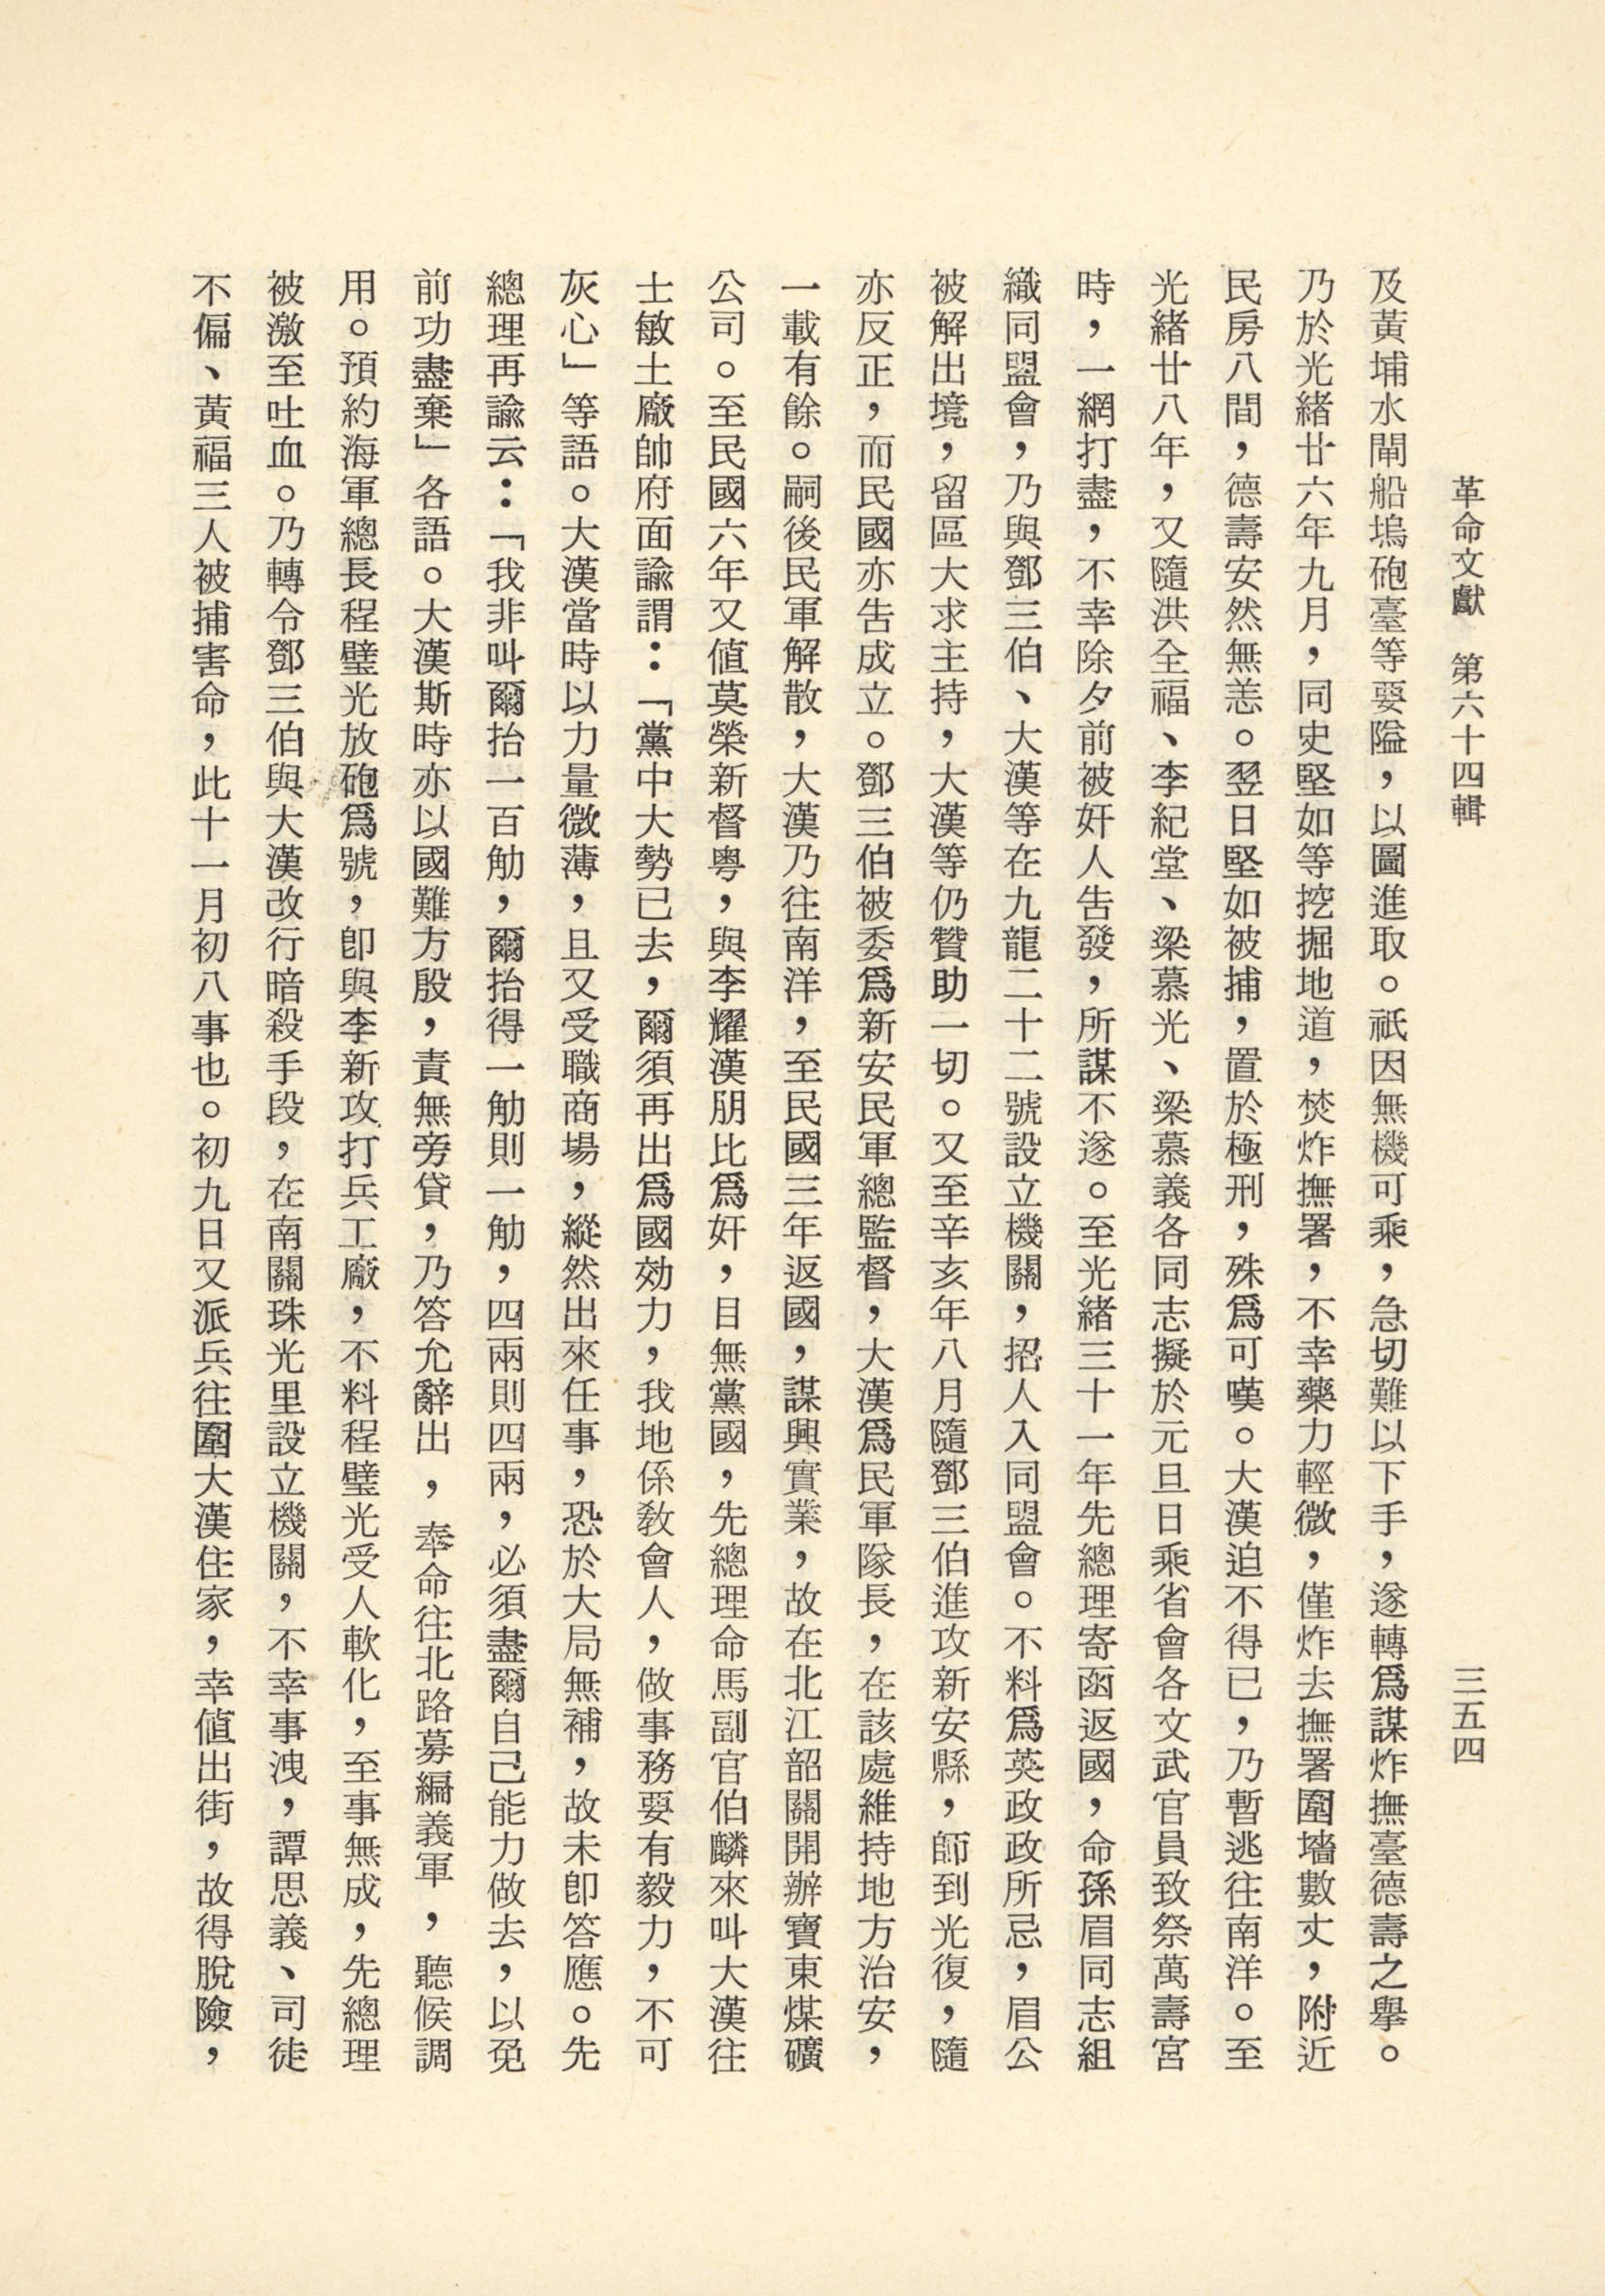 革命文獻　第六十四輯
三五四
及黃埔水閘船塢砲臺等要隘，以圖進取。祇因無機可乘，急切難以下手，遂轉爲謀炸撫臺德壽之舉。
乃於光緒廿六年九月，同史堅如等挖掘地道，焚炸撫署，不幸藥力輕微，僅炸去撫署圍墻數丈，附近
民房八間，德壽安然無恙。翌日堅如被捕，置於極刑，殊爲可嘆。大漢迫不得已，乃暫逃往南洋。至
光緒廿八年，又隨洪全福、李紀堂、梁慕光、梁慕義各同志擬於元旦日乘省會各文武官員致祭萬壽宮
時，一網打盡，不幸除夕前被奸人告發，所謀不遂。至光緒三十一年先總理寄函返國，命孫眉同志組
織同盟會，乃與鄧三伯、大漢等在九龍二十二號設立機關，招人入同盟會。不料爲英政政所忌，眉公
被解出境，留區大求主持，大漢等仍贊助一切。又至辛亥年八月隨鄧三伯進攻新安縣，師到光復，隨
亦反正，而民國亦告成立。鄧三伯被委爲新安民軍總監督，大漢爲民軍隊長，在該處維持地方治安，
一載有餘。嗣後民軍解散，大漢乃往南洋，至民國三年返國，謀興實業，故在北江韶關開辦寶東煤礦
公司。至民國六年又值莫榮新督粤，與李耀漢朋比爲奸，目無黨國，先總理命馬副官伯麟來叫大漢往
士敏土廠帥府面諭謂：「黨中大勢已去，爾須再出爲國効力，我地係敎會人，做事務要有毅力，不可
灰心」等語。大漢當時以力量微薄，且又受職商場，縱然出來任事，恐於大局無補，故未卽答應。先
總理再諭云：「我非叫爾抬一百觔，爾抬得一觔則一觔，四兩則四兩，必須盡爾自己能力做去，以免
前功盡棄」各語。大漢斯時亦以國難方殷，責無旁貸，乃答允辭出，奉命往北路募編義軍，聽候調
用。預約海軍總長程璧光放砲爲號，卽與李新攻打兵工廠，不料程璧光受人軟化，至事無成，先總理
被激至吐血。乃轉令鄧三伯與大漢改行暗殺手段，在南關珠光里設立機關，不幸事洩，譚思義、司徒
不偏、黃福三人被捕害命，此十一月初八事也。初九日又派兵往圍大漢住家，幸値出街，故得脫險，